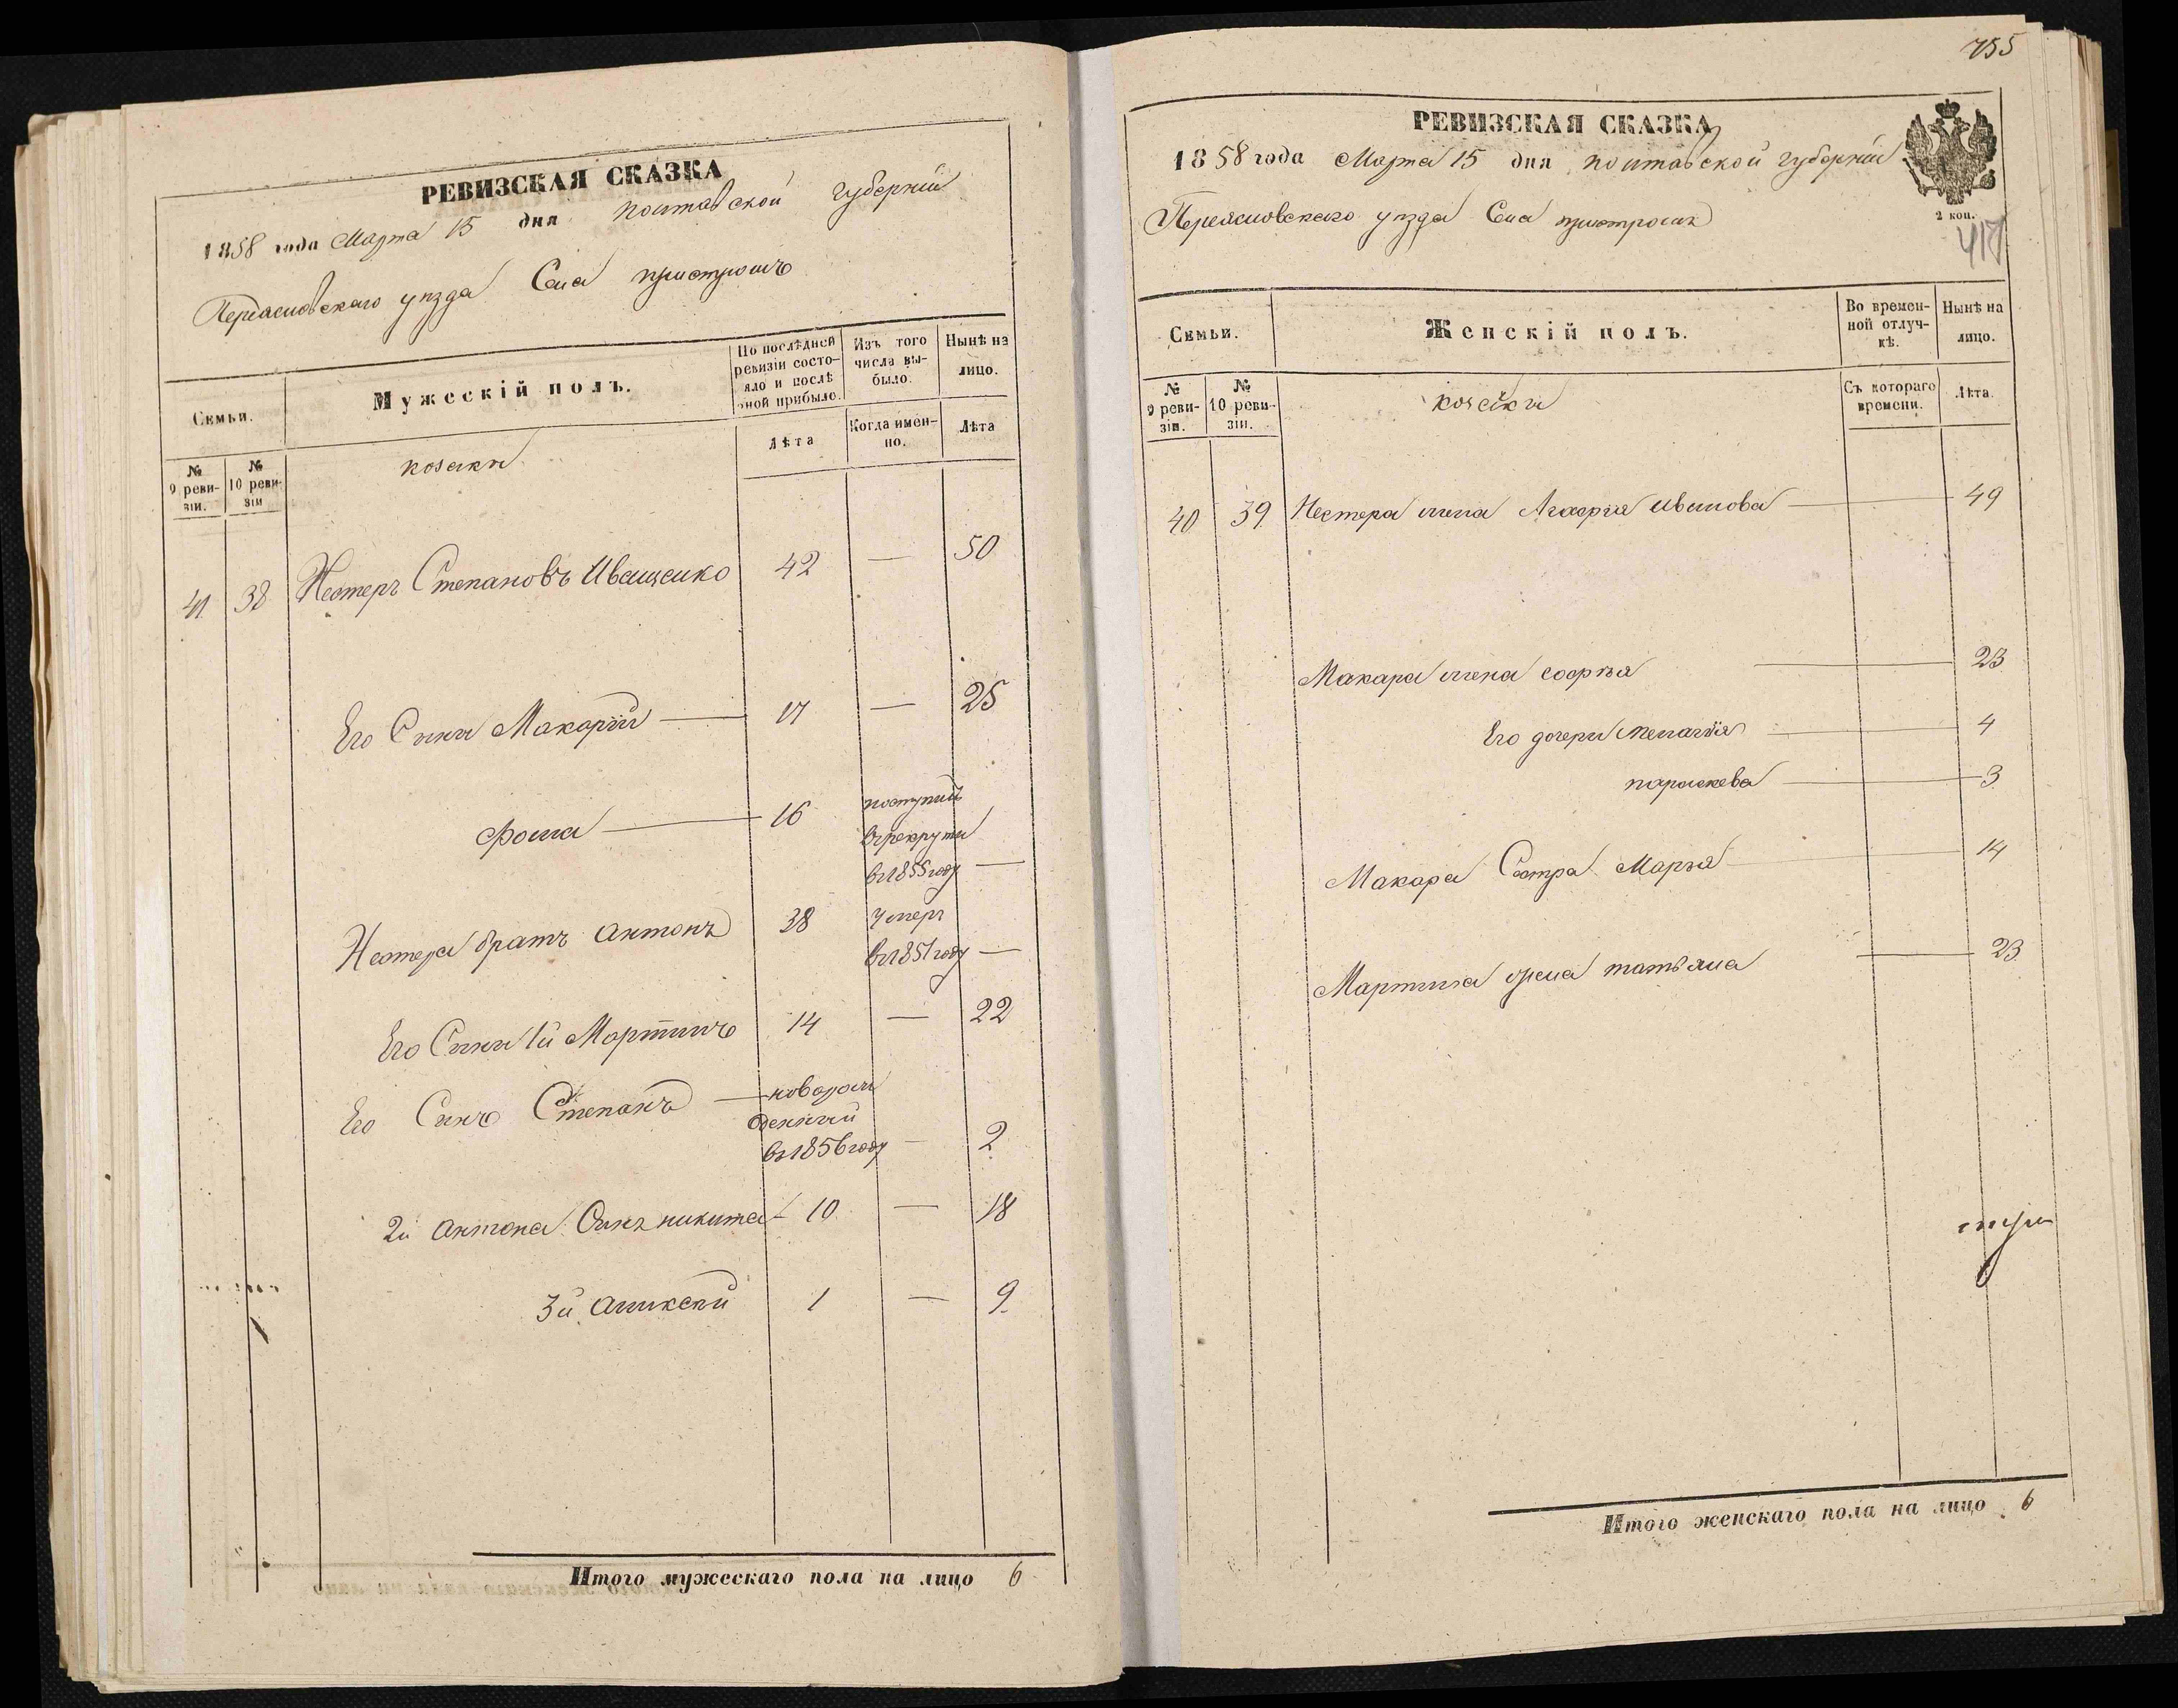 РЕВИЗСКАЯ СКАЗКА
1858 года Марта 15 дня полтавской губерніи
Переяславского уезда Села пристромъ
Семьи.
Мужескій полъ.
По послѣдней ревизіи состояло и послѣ оной прибыло.
Изъ того числа выбыло.
Нынѣ на лицо.
№ 9 ревизіи.
№ 10 ревизіи
козаки
Лѣта
Когда именно.
Лѣта
41 38 Нестеръ Степановъ Иващенко 42 — 50
Его Сыны Макарий — 17 — 25
Фома — 16 поступилъ
в рекруты
въ 1855 году —
Нестера братъ Антонъ 38 умеръ
въ 1851 году —
Его Сыны 1й Мартинъ 14 — 22
Его Синъ Степанъ — новорож
денный
въ 1856 году — 2
2й Антона Синъ никита — 10 — 18
3й Аликсей 1 — 9
Итого мужескаго пола на лицо 6
755
РЕВИЗСКАЯ СКАЗКА
1858 года Марта 15 дня полтавской губерніи
Переяславского уезда Села
2 коп.
417
Семьи.
Женскій полъ.
Во временной отлучкѣ.
Нынѣ на лицо.
№ 9 ревизіи.
№ 10 ревизіи.
козачки
Съ котораго времени.
Лѣта.
40 39 Нестера жена Агафия Иванова — 49
Макара жена софья — 23
Его дочери Пелагия — 4
параскева — 3
Макара Сестра Марья — 14
Мартина жена татьяна — 23
Итого женскаго пола на лицо 6